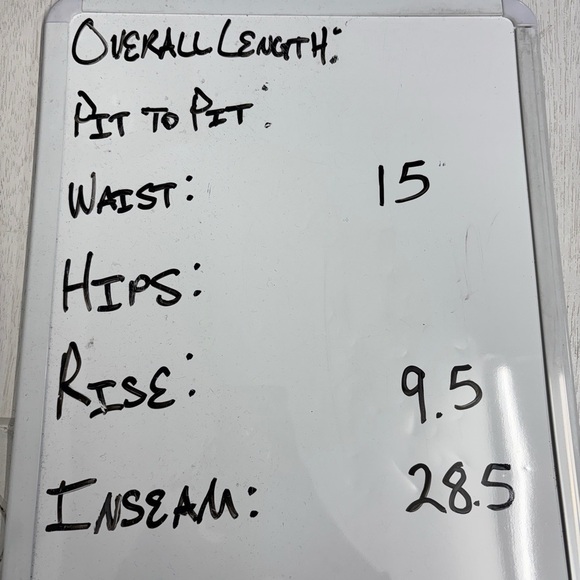 OVERALL LENGTH:
PIT TO PIT:
WAIST: 15
HIPS:
RISE: 9.5
INSEAM: 28.5